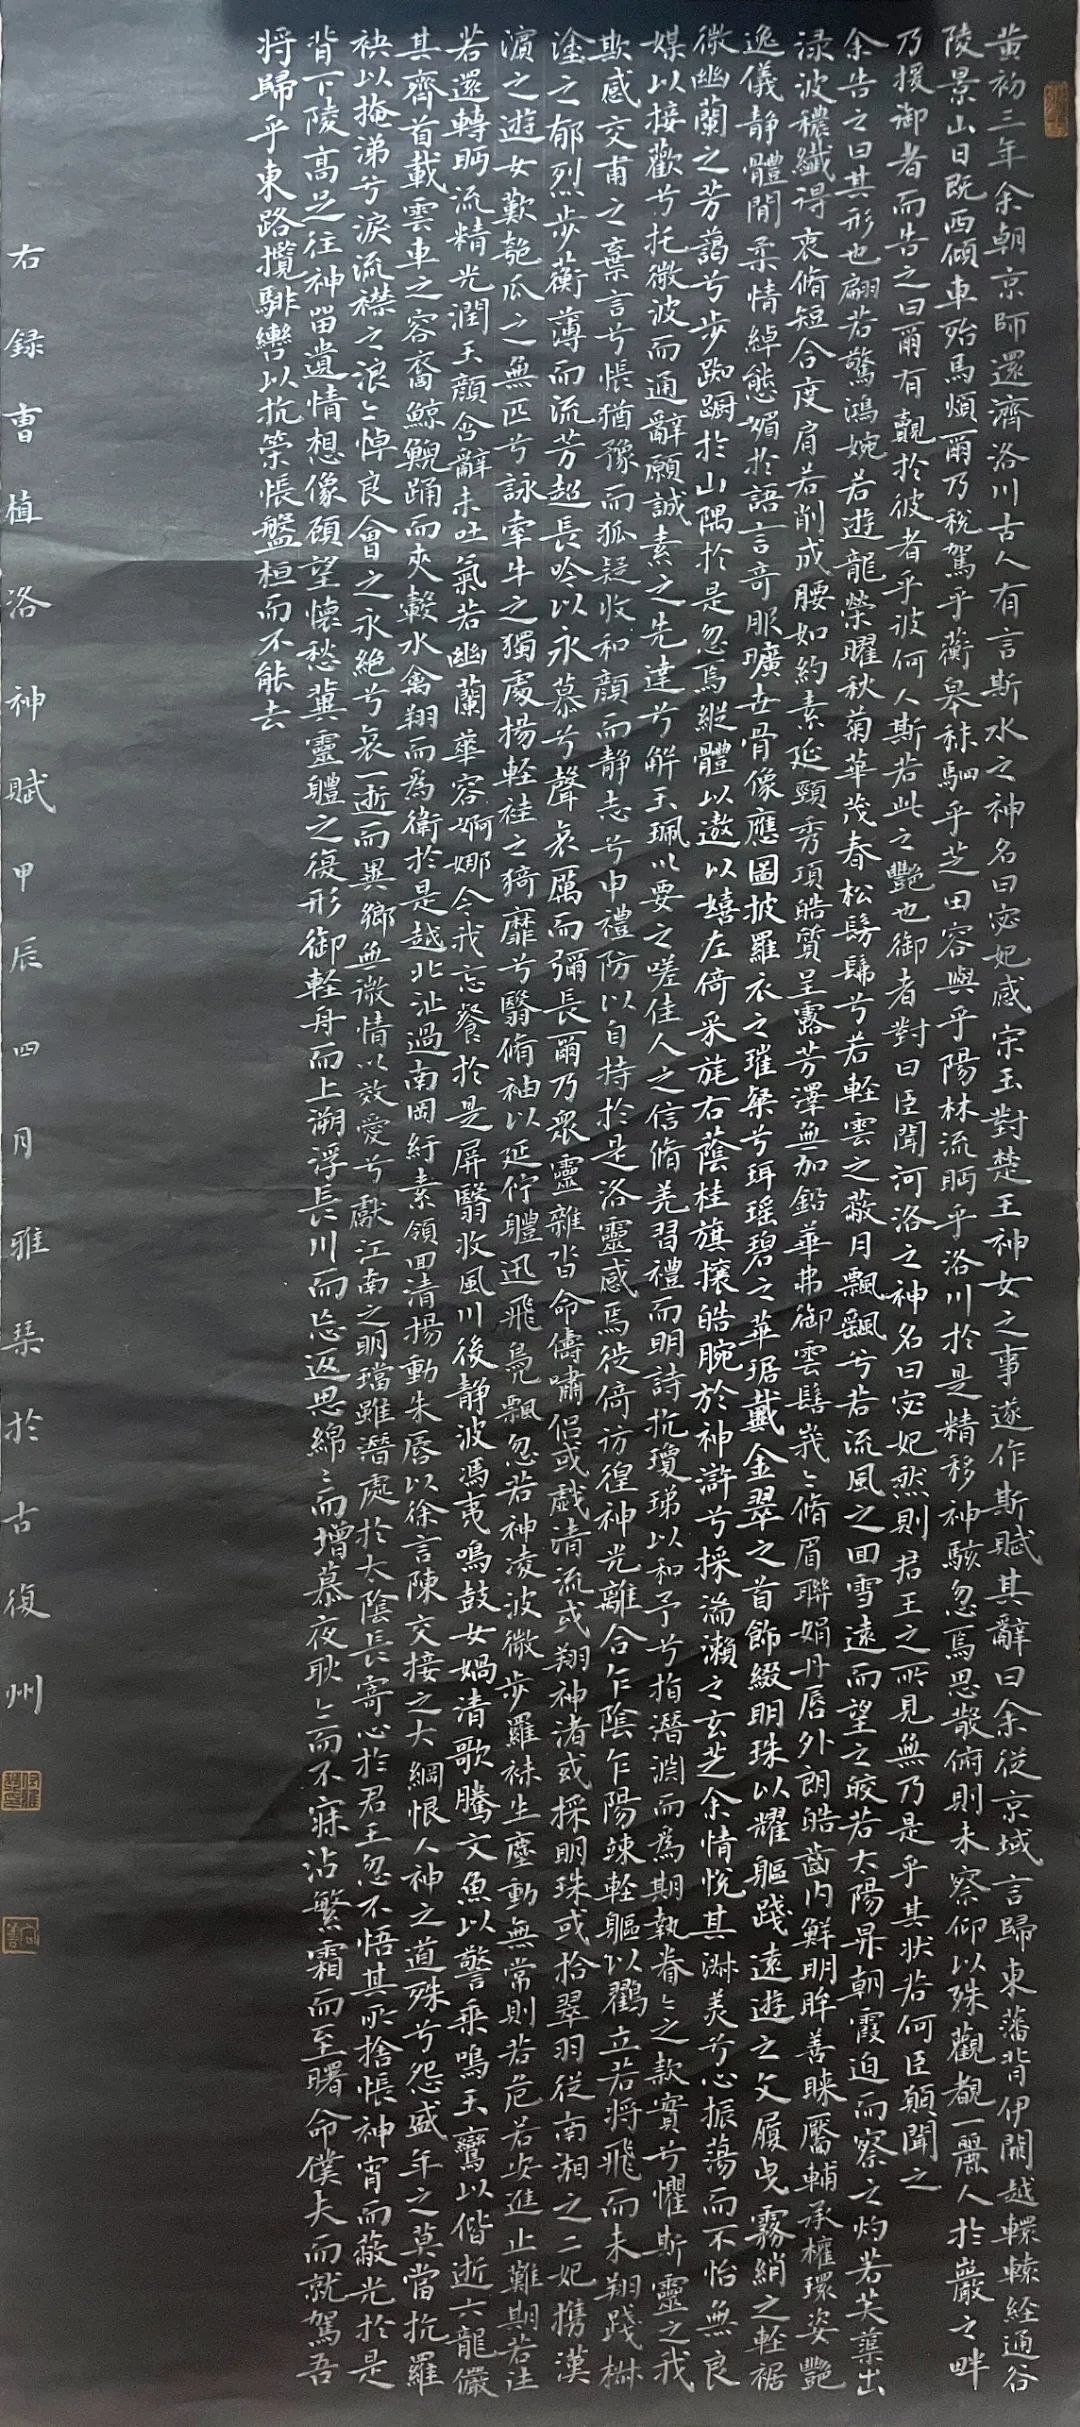 黄初三年余朝京師還濟洛川古人有言斯水之神名曰宓妃感宋玉對楚王神女之事遂作斯賦其辭曰余從京域言歸東藩背伊闕越轘轅经通谷
陵景山日既西傾車殆馬煩爾乃稅駕乎蘅皋秣駟乎芝田容與乎陽林流眄乎洛川於是精移神駭忽焉思散俯則未察仰以殊觀覩一麗人於巖之畔
乃援御者而告之曰爾有覿於彼者乎彼何人斯若此之艷也御者對曰臣聞河洛之神名曰宓妃然則君王之所見無乃是乎其状若何臣願聞之
余告之曰其形也翩若驚鴻婉若遊龍榮曜秋菊華茂春松髣髴兮若輕雲之蔽月飄飖兮若流風之回雪遠而望之皎若太陽昇朝霞迫而察之灼若芙蕖出
渌波穠纖得衷脩短合度肩若削成腰如約素延頸秀項皓質呈露芳澤無加鉛華弗御雲髻峩〻脩眉聯娟丹唇外朗皓齒内鮮明眸善睞靨輔承權瓌姿艷
逸儀静體閒柔情綽態媚於語言奇服曠世骨像應圖披羅衣之璀粲兮珥瑶碧之華琚戴金翠之首飾綴明珠以耀軀踐遠遊之文履曳霧綃之輕裾
微幽蘭之芳藹兮步踟蹰於山隅於是忽焉縱體以遨以嬉左倚采旄右蔭桂旗攘皓腕於神滸兮採湍瀨之玄芝余情悅其淋美兮心振蕩而不怡無良
媒以接歡兮托微波而通辭願誠素之先達兮解玉珮以要之嗟佳人之信脩羌習禮而明詩抗瓊珶以和予兮指潛淵而為期執眷〻之款實兮懼斯靈之我
欺感交甫之棄言兮悵猶豫而狐疑收和顔而静志兮申禮防以自持於是洛靈感焉徙倚彷徨神光離合乍陰乍陽竦輕軀以鶴立若將飛而未翔踐椒
塗之郁烈步蘅薄而流芳超長吟以永慕兮聲哀厲而彌長爾乃衆靈雜沓命儔嘯侣或戲清流或翔神渚或採明珠或拾翠羽從南湘之二妃攜漢
濵之遊女歎匏瓜之無匹兮詠牽牛之獨處揚輕袿之猗靡兮翳脩袖以延佇體迅飛鳬飄忽若神凌波微步羅袜生塵動無常則若危若安進止難期若往
若還轉眄流精光潤玉顔含辭未吐氣若幽蘭華容婀娜令我忘餐於是屏翳收風川後静波馮夷鳴鼓女媧清歌騰文魚以警乘鳴玉鸞以偕逝六龍儼
其齊首載雲車之容裔鯨鯢踊而夾轂水禽翔而為衛於是越北沚過南岡紆素領回清揚動朱唇以徐言陳交接之大綱恨人神之道殊兮怨盛年之莫當抗羅
袂以掩涕兮淚流襟之浪〻悼良會之永絶兮哀一逝而異鄉無微情以效愛兮獻江南之明璫雖潛處於太陰長寄心於君王忽不悟其所捨悵神宵而蔽光於是
背下陵高足往神留遺情想像顧望懷愁冀靈體之復形御輕舟而上溯浮長川而忘返思綿〻而增慕夜耿〻而不寐沾繁霜而至曙命僕夫而就駕吾
將歸乎東路攬騑轡以抗策悵盤桓而不能去
右録曹植洛神賦甲辰四月雅琹於古復州